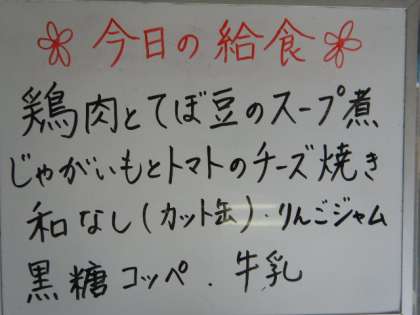 今日の給食
鶏肉とてぼ豆のスープ煮
じゃがいもとトマトのチーズ焼き
和なし(カット缶)・りんごジャム
黒糖コッペ.牛乳